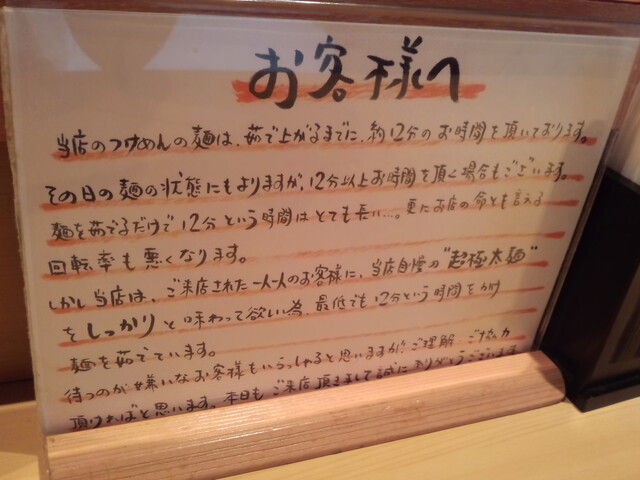 お客様へ
当店のつけめんの麺は、茹で上がるまでに、約12分のお時間を頂いております。
その日の麺の状態にもよりますが、12分以上お時間を頂く場合もございます。
麺を茹でるだけで12分という時間はとても長い…。更にお店の命とも言える
回転率も悪くなります。
しかし当店は、ご来店された一人一人のお客様に、当店自慢の"超極太麺"
をしっかりと味わって欲しい為、最低でも12分という時間をかけ
麺を茹でています。
待つのが嫌いなお客様もいらっしゃると思いますが、ご理解、ご協力
頂ければと思います。本日もご来店頂きまして誠にありがとうございます